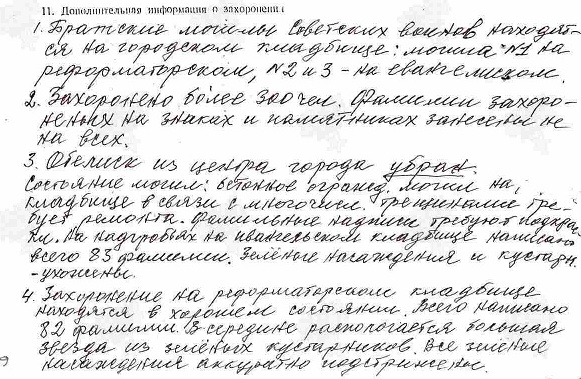 11. Дополнительная информация о захоронении
1. Братские могилы Советских воинов находят-
ся на городском кладбище: могила №1 на
реформаторском, №2 и 3 - на евангелиском.
2. Захоронено более 300 чел. Фамилии захоро-
неных на знаках и памятниках занесены не
на всех.
3. Обелиск из центра города убран.
Состояние могил: бетонное огражд. могил на
кладбище в связи с многочисл. трещинами тре-
бует ремонта. Фамильные надписи требуют подкрас-
ки. На надгробьях на евангельском кладбище написано
всего 83 фамилии. Зелёные насаждения и кустарн.
-ухожены.
4. Захоронение на реформаторском кладбище
находятся в хорошем состоянии. Всего написано
82 фамилии. В середине распологается большая
звезда из зелёных кустарников. Все зелёные
насаждения аккуратно подстрижены.